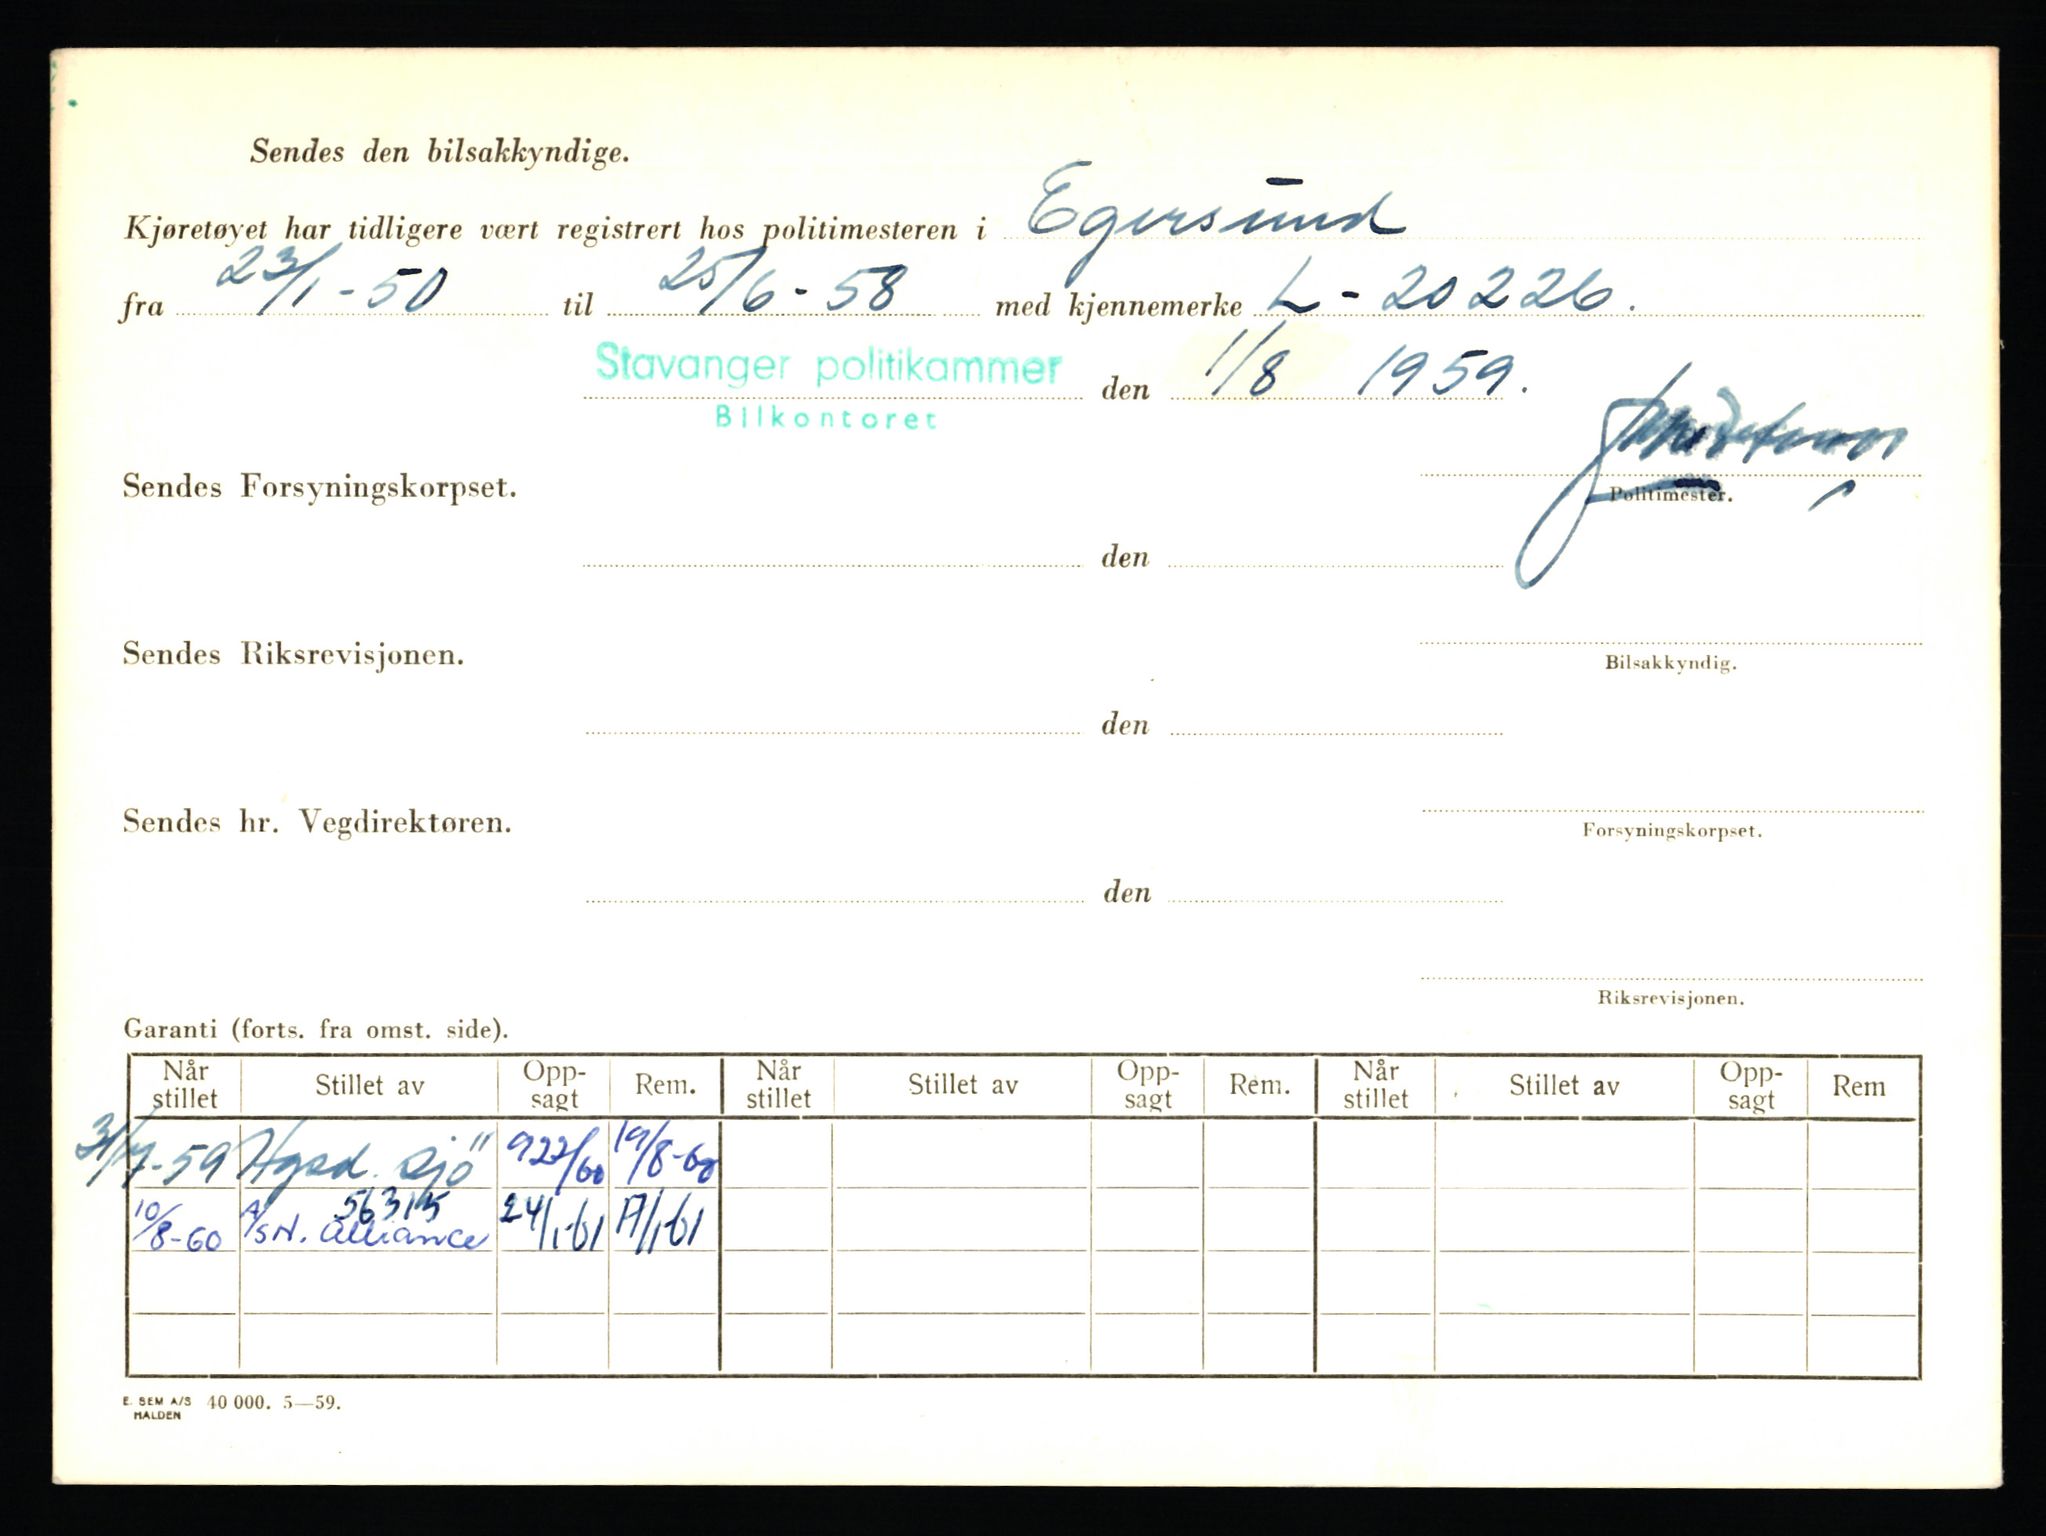 Sendes den bilsakkyndige.
Kjøretøyet har tidligere vært registrert hos politimesteren i Egersund
fra 23/1-50 til 25/6-58 med kjennemerke L-20226.
Stavanger politikammer den 1/8 1959.
Bilkontoret
Sendes Forsyningskorpset.
Politimester.
den
Sendes Riksrevisjonen.
Bilsakkyndig.
den
Sendes hr. Vegdirektøren.
Forsyningskorpset.
den
Riksrevisjonen.
Garanti (forts. fra omst. side).
Når stillet Stillet av Opp-sagt Rem. Når stillet Stillet av Opp-sagt Rem. Når stillet Stillet av Opp-sagt Rem
31/7-59 Hgsd. Sjö 922/60 19/8-60
56315
10/8-60 A/S N. Alliance 24/1-61 /1-61
E. SEM A/S 40 000. 5—59.
HALDEN